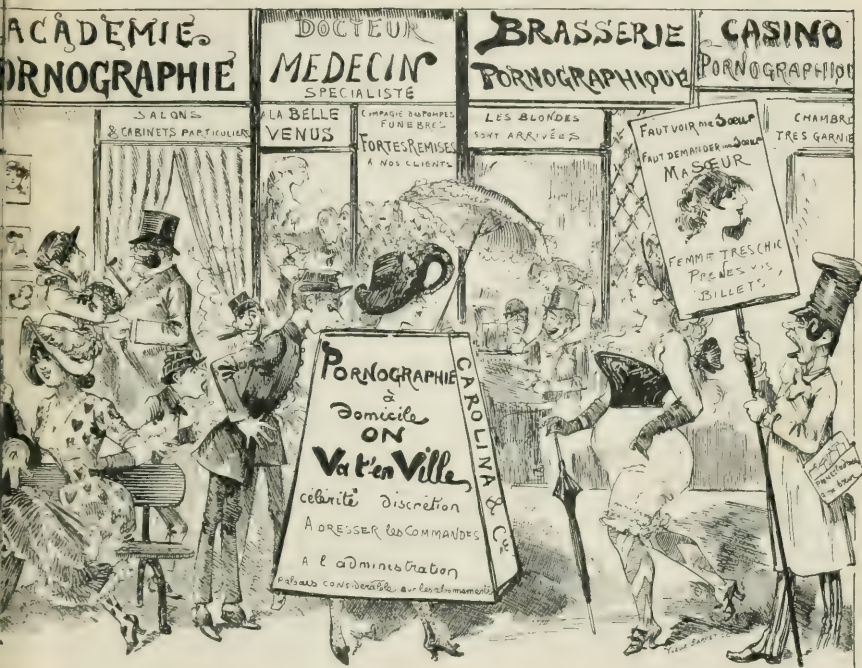 ACADÉMIE
ORNOGRAPHIE
SALONS
& CABINETS PARTICULIERS
DOCTEUR
MEDECIN
SPECIALISTE
A LA BELLE
VENUS
COMPAGIE DES POMPES
FUNEBRES
FORTES REMISES
A NOS CLIENTS
BRASSERIE
PORNOGRAPHIQUE
LES BLONDES
SONT ARRIVÉES
CASINO
PORNOGRAPHIQU
CHAMBRE
TRES GARNIE
FAUT VOIR ma SŒUR
FAUT DEMANDER ma SŒUR
MA SŒUR
FEMME TRES CHIC
PRENES VOS
BILLETS
PORNOGRAPHIE
à
Domicile
ON
Va t'en Ville
célérité discrétion
ADRESSER les COMMANDES
A l'administration
rabais considérable sur les abonnements
CAROLINA & Cie